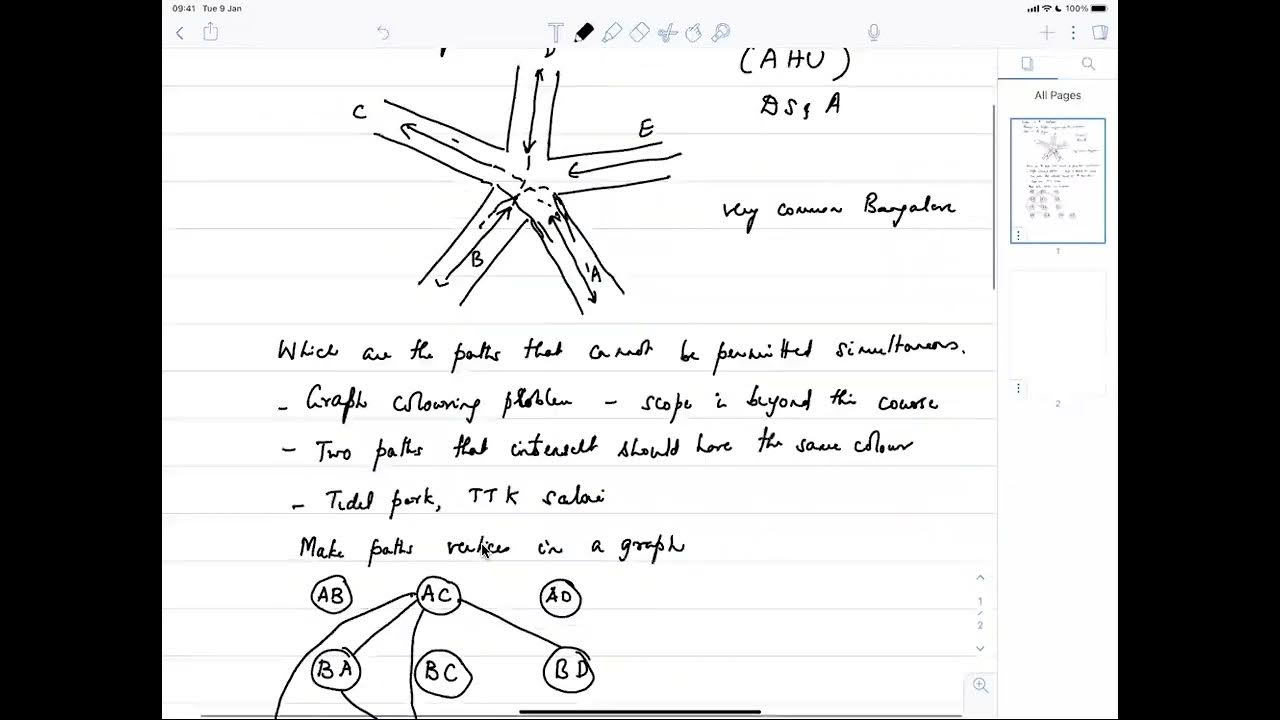 09:41 Tue 9 Jan
100%
T
(AHU)
D
DS & A
C
E
All Pages
very common Bangalore
B
A
1
Which are the paths that cannot be permitted simultaneous.
- Graph colouring problem - scope is beyond this course
- Two paths that intersect should have the same colour
2
- Tidel park, TTK salai
Make paths vertices in a graph
AB AC AD
1
/
2
BA BC BD